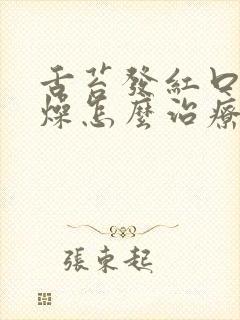 舌苔發紅口
燥怎麼治療
張東起